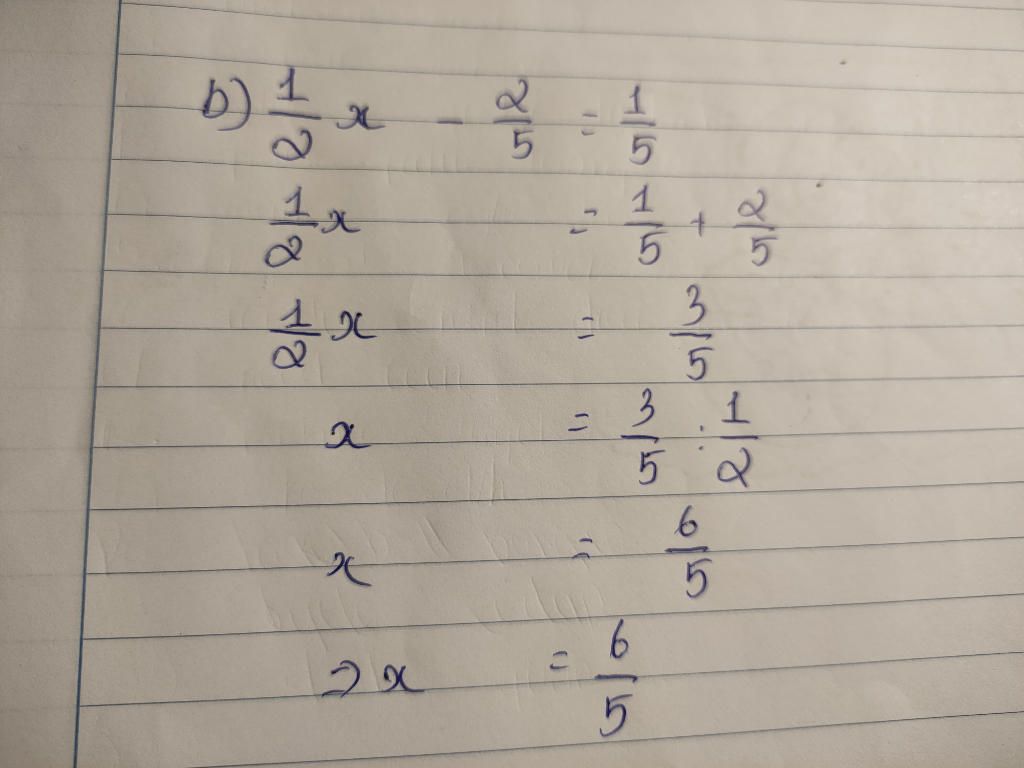 b) 1/2 x - 2/5 = 1/5
1/2 x = 1/5 + 2/5
1/2 x = 3/5
x = 3/5 : 1/2
x = 6/5
⇒ x = 6/5